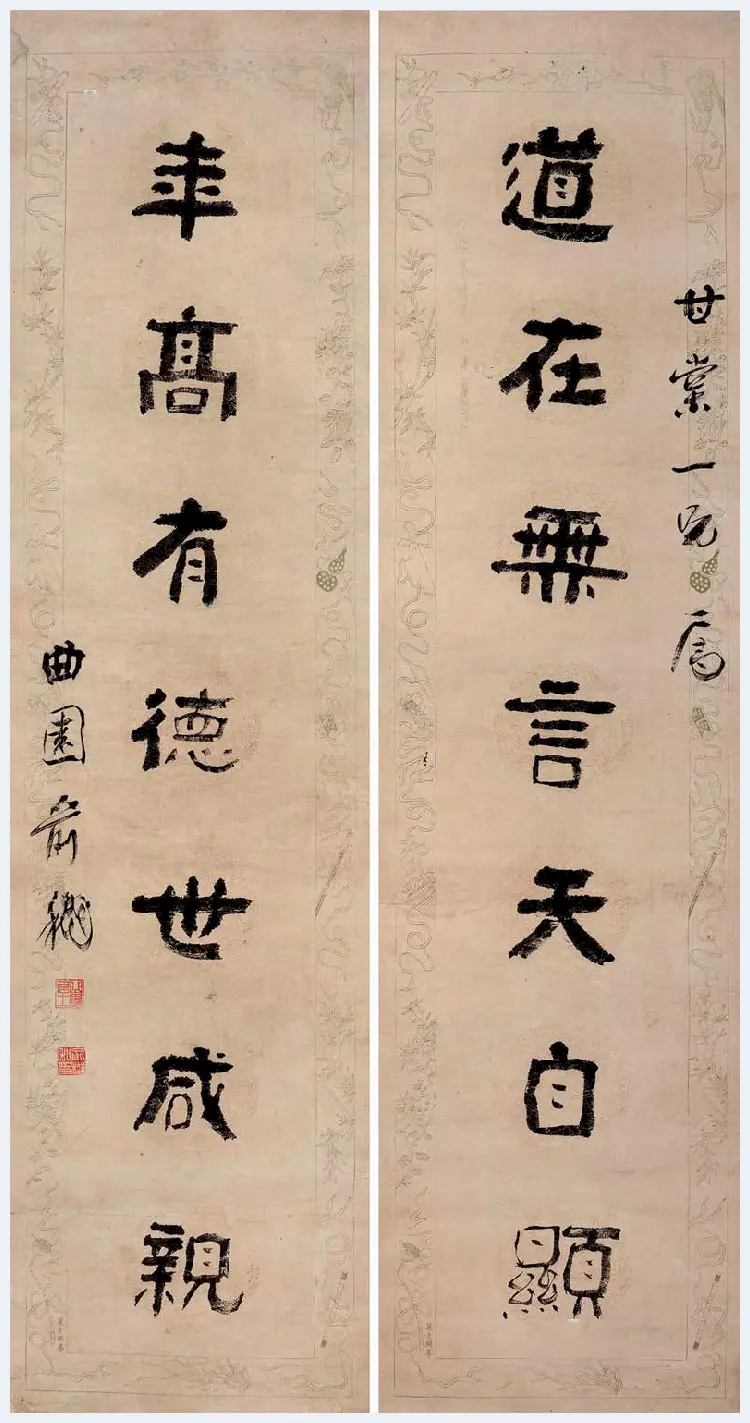 甘棠一兄属
道在無言天自顯
年高有德世咸親
曲園俞樾